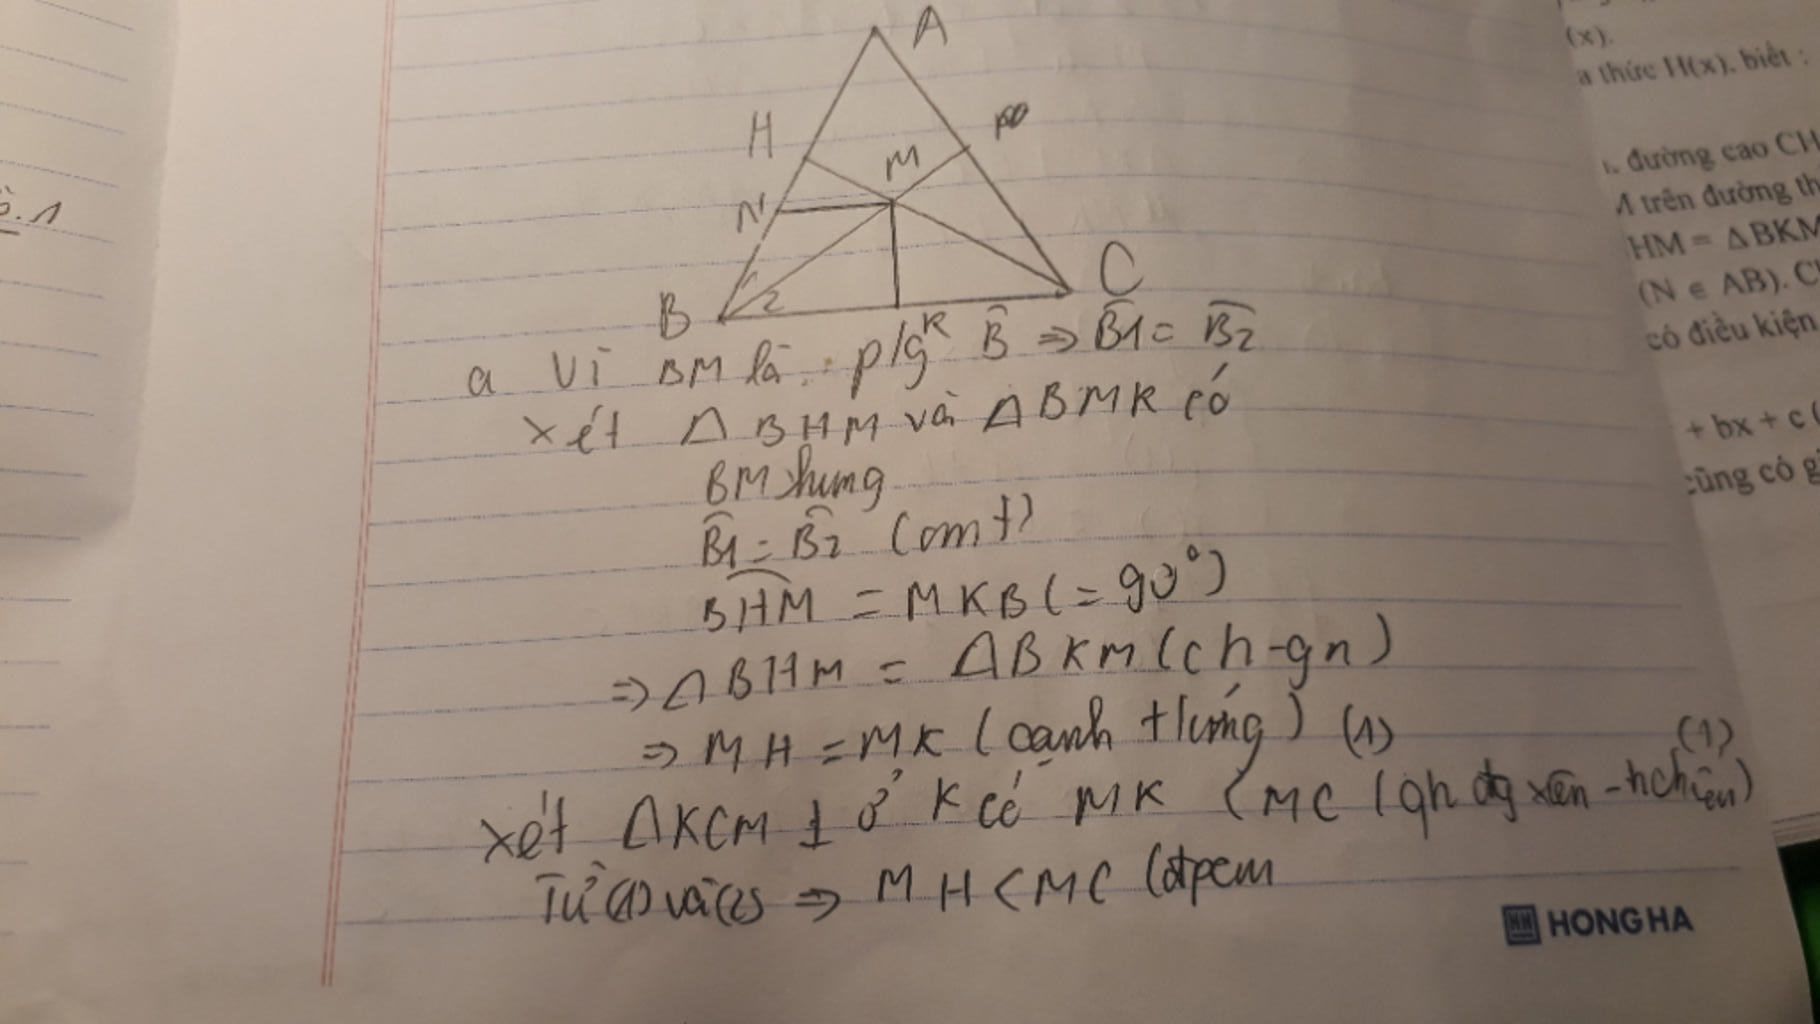 (x).
a thức H(x). biết :
A
H
M
N
đường cao CH
M trên đường th
HM = ΔBKM
(N ∈ AB). C
có điều kiện
C
B
2
K
a Vì BM là p/g B̂ ⇒ B̂1 = B̂2
xét Δ BHM và Δ BMK có
BM chung
B̂1 = B̂2 (cmt)
BHM = MKB (= 90°)
⇒ Δ BHM = Δ BKM (ch-gn)
⇒ MH = MK (cạnh tứng) (1)
(1)
xét ΔKCM ⊥ ở K có MK < MC (qh đg xiên - hchiếu)
Từ (1) và (2) ⇒ MH < MC (đpcm
+ bx + c (
cũng có g
HONG HA